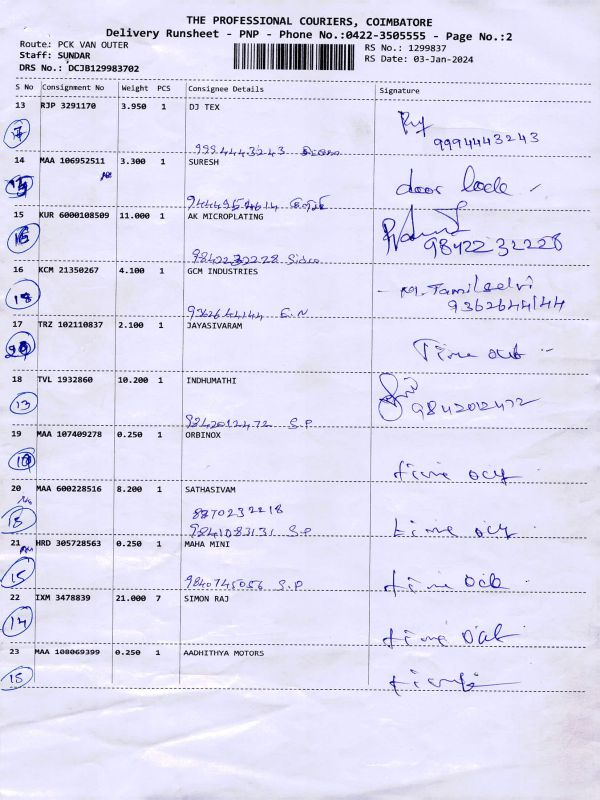 THE PROFESSIONAL COURIERS, COIMBATORE
Delivery Runsheet - PNP - Phone No.:0422-3505555 - Page No.:2
Route: PCK VAN OUTER
RS No.: 1299837
Staff: SUNDAR
RS Date: 03-Jan-2024
DRS No.: DCJB129983702
S No Consignment No Weight PCS Consignee Details Signature
13 RJP 3291170 3.950 1 DJ TEX
9994443243
9994443243
14 MAA 106952511 3.300 1 SURESH
door lock -
15 KUR 6000108509 11.000 1 AK MICROPLATING
16
9842232228
9842232228
16 KCM 21350267 4.100 1 GCM INDUSTRIES
18
- M. Tamilselvi
9362644144 E.N
9362644144
17 TRZ 102110837 2.100 1 JAYASIVARAM
Time out -
18 TVL 1932860 10.200 1 INDHUMATHI
13
9842012472 S.P
9842012472
19 MAA 107409278 0.250 1 ORBINOX
20 MAA 600228516 8.200 1 SATHASIVAM
8870232218
9841083131 S.P
21 HRD 305728563 0.250 1 MAHA MINI
15
9840745056 S.P
22 IXM 3478839 21.000 7 SIMON RAJ
14
23 MAA 108069399 0.250 1 AADHITHYA MOTORS
15